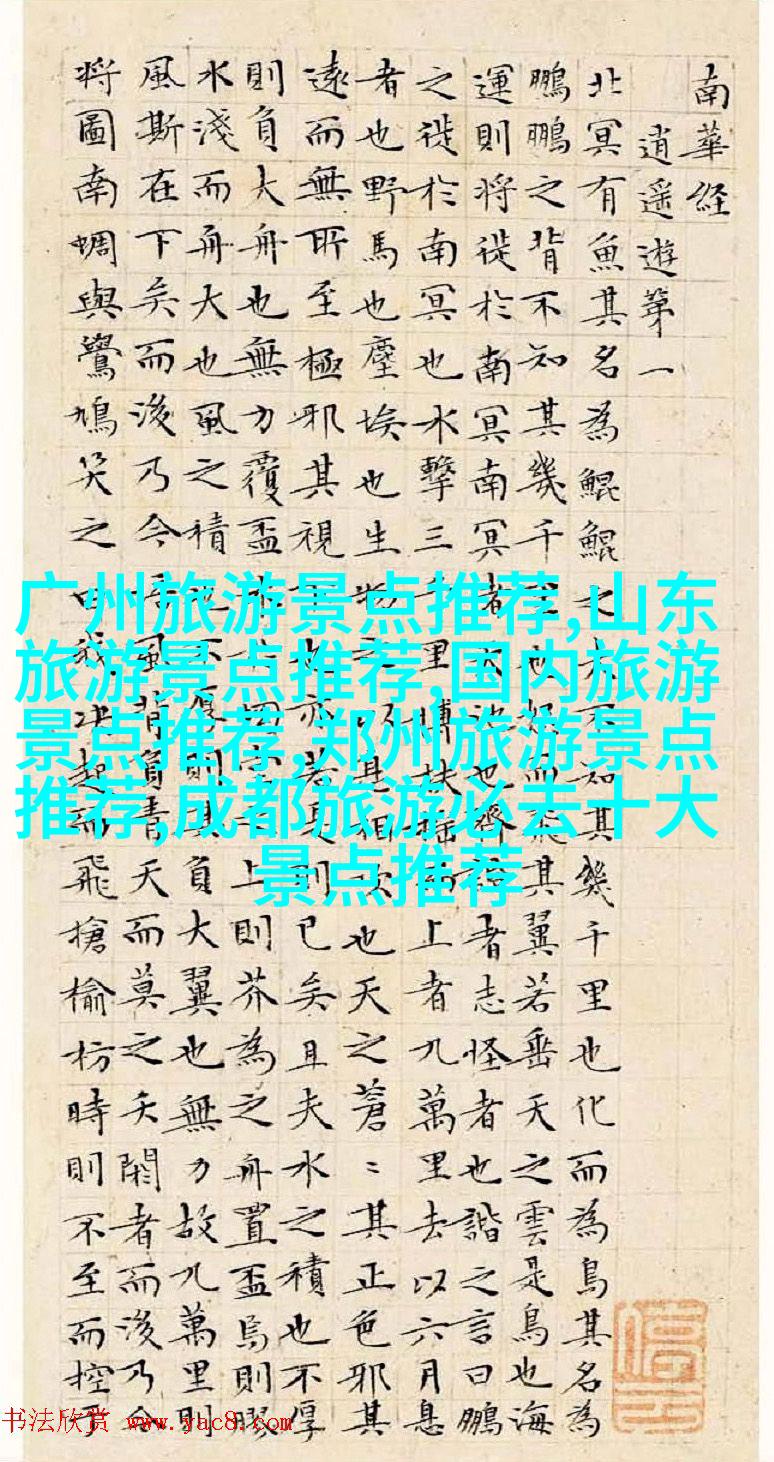 南華経
逍遥遊第一
北冥有魚其名為鯤鯤之大不知其幾千里也化而為鳥其名為
鵬鵬之背不知其幾千里也怒而飛其翼若垂天之雲是鳥也海
運則将徙於南冥南冥者天池也齊諧者志怪者也諧之言曰鵬
之徙於南冥也水擊三千里摶扶揺而上者九萬里去以六月息
者也野馬也塵埃也生物之以息相吹也天之蒼〻其正色邪其
遠而無所至極邪其視下也亦若是則已矣且夫水之積也不厚
則負大舟也無力覆盃水上則芥為之舟置盃焉則膠
水淺而舟大也風之積也不厚則其負大翼也無力故九萬里則
風斯在下矣而後乃今培風背負青天而莫之夭閼者而後乃今
将圖南蜩與鷽鳩笑之曰我决起而飛搶榆枋時則不至而控
广州旅游景点推荐,山东
旅游景点推荐,国内旅游
景点推荐,郑州旅游景点
推荐,成都旅游必去十大
景点推荐
书法欣赏 www.yac8.com